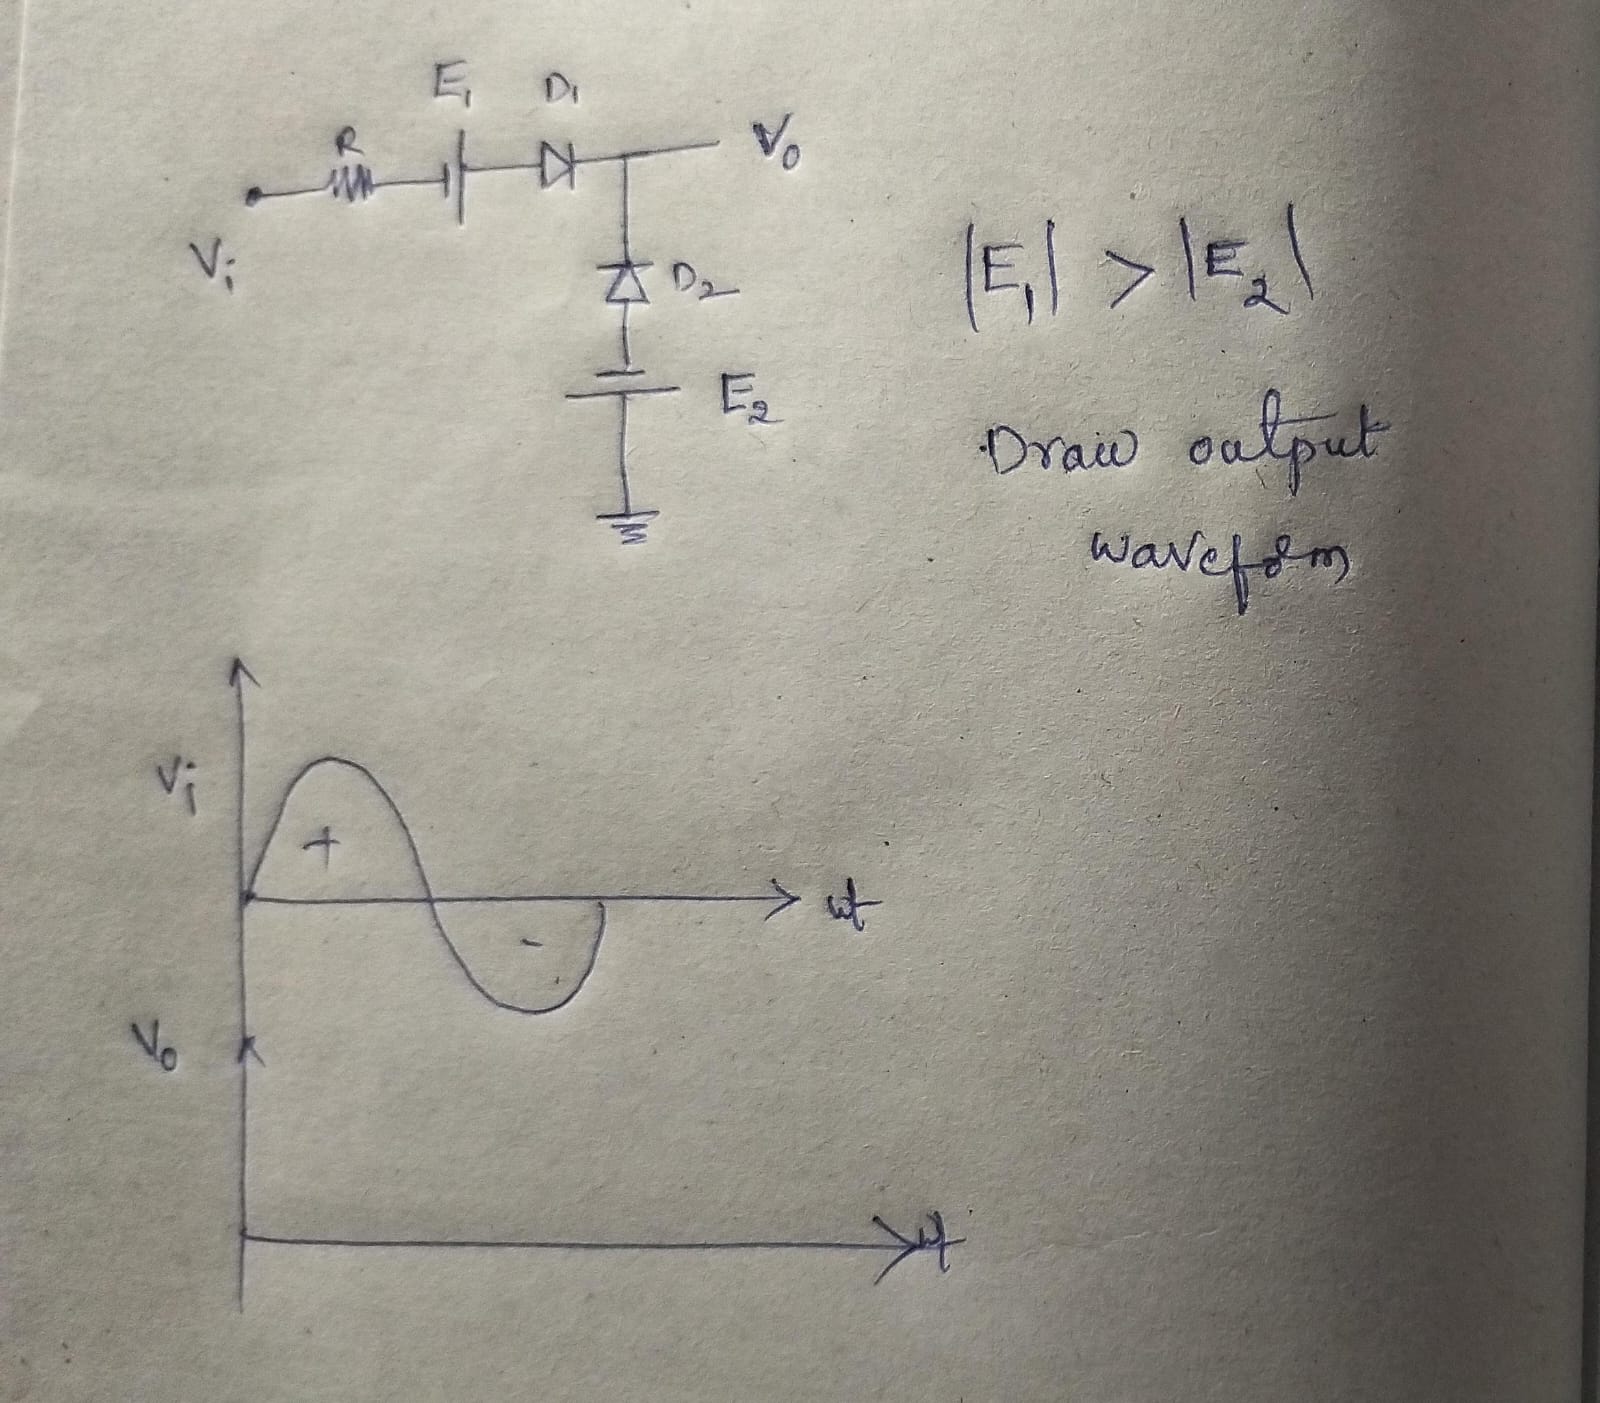 E₁ D₁
R
V₀
Vᵢ
D₂
E₂
|E₁| > |E₂|
Draw output
waveform
Vᵢ
+
ωt
-
V₀
ωt